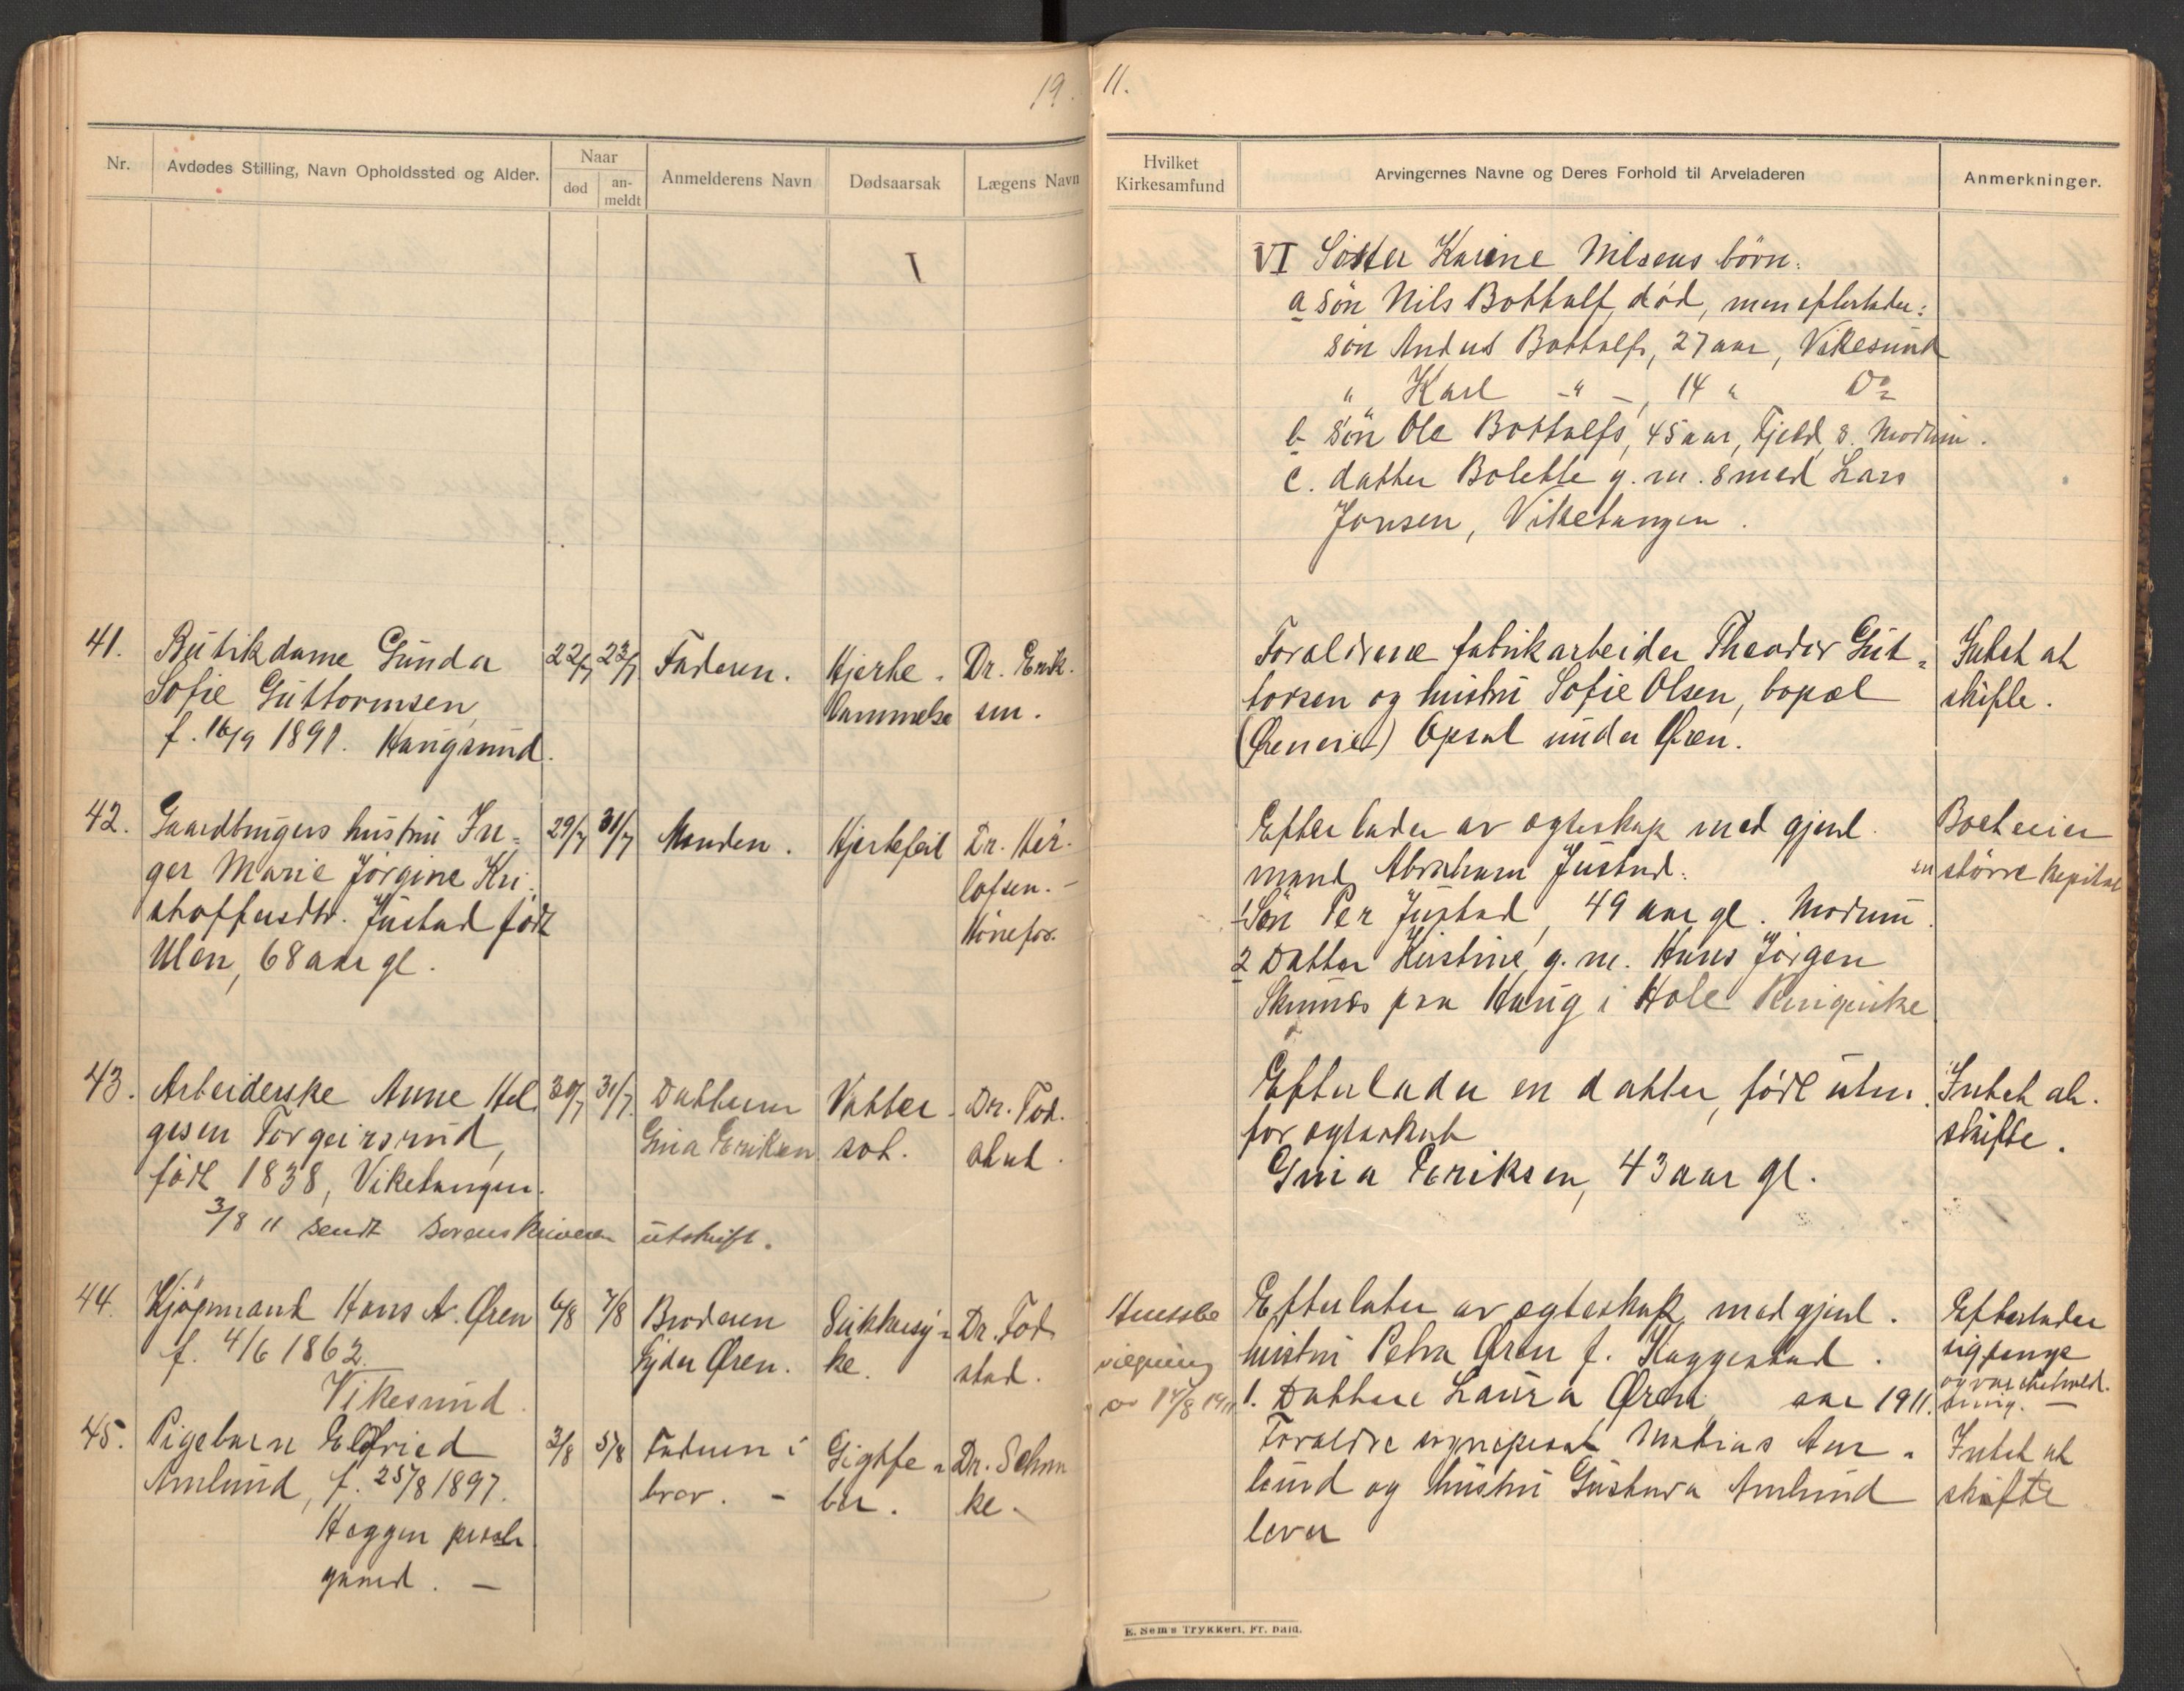 19. 11.
Nr.
Avdødes Stilling, Navn Opholdssted og Alder.
Naar
død
an-
meldt
Anmelderens Navn
Dødsaarsak
Lægens Navn
Hvilket
Kirkesamfund
Arvingernes Navne og Deres Forhold til Arveladeren
Anmerkninger.
VI Søster Karine Nilsens børn:
a søn Nils Botholf, død, men efterlader:
søn Anders Botholfs, 27 aar, Vikesund
" Karl -"-, 14 " Do
b søn Ole Botholfs, 45 aar, Fjeld, s. Modum.
c. datter Bolette g. m. smed Lars
Jonsen, Viketangen.
41.
Butikdame Gunda
Sofie Guttormsen,
f. 16/9 1891. Haugsund.
22/7
23/7
Faderen.
Hjerte-
lammelse
Dr. Erik-
sen.
Foraldrene fabrikarbeider Theodor Gut-
torsen og hustru Sofie Olsen, bopæl
(Øreneie) Opsal under Øren.
Intet at
skifte.
42.
Gaardbrugers hustru In-
ger Marie Jørgine Kri-
stoffersdtr. Justad født
Ulen, 68 aar gl.
29/7
31/7
Manden.
Hjertefeil
Dr. Her-
lofsen.-
Hönefos.
Efterlader av egteskap med gjenl.
mand Abraham Justad.
1 Søn Per Justad, 49 aar gl. Modum.
2 Datter Kirstine, g. m. Hans Jörgen
paa Haug i Hole Ringerike
Boet eier
en större kapital
43.
Arbeiderske Anne Hel-
gesen Torgeirsrud,
født 1838, Viketangen.
3/8 11 sendt Sorenskriveren utskrift.
30/7
31/7
Datteren
Gina Eriksen
Vatter-
sot.
Dr. Tod-
stad.
Efterlader en datter, født uten-
for egteskab
Gina Eriksen, 43 aar gl.
Intet at
skifte.
44.
Kjøpmand Hans A. Øren
f. 4/6 1862.
Vikesund.
6/8
7/8
Broderen
Øren.
Sukkersy-
ke.
Dr. Tod-
stad.
av 14/8 1911
Efterlater av egteskap med gjenl.
hustru Petra Øren f. Kaggestad.
1. Dattere Laura Øren aar 1911.
Efterlader
45.
Pigebarn Elfried
Amlund, f. 25/8 1897.
Heggen prest-
gaard. -
3/8
5/8
Faderen i
brev. -
Gigtfe-
ber.
Dr. Schan
ke.
Foraldre Mathias Am-
lund og hustru Gustava Amlund
lever
Intet at
skifte
E. Sem's Trykkeri, Fr. hald.